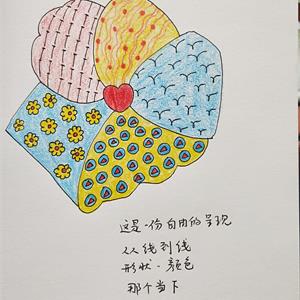 这是一份自由的呈现
从线到线
形状·颜色
那个当下